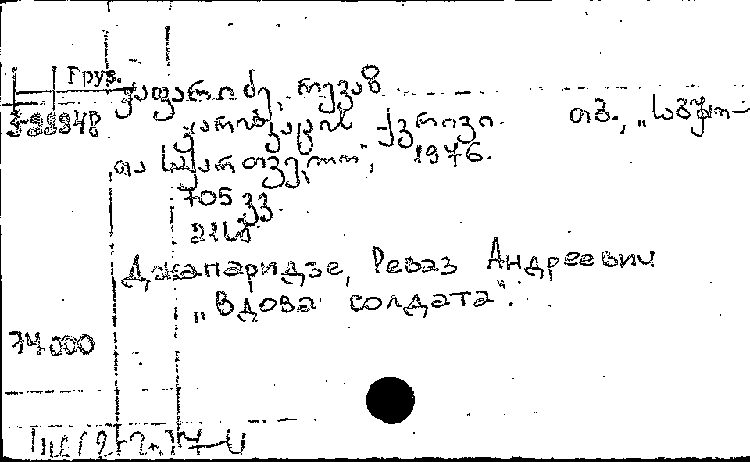 Груз.
ჯაფარიძე, რევაზ
ჯარისკაცის ქვრივი. თბ., „საბჭო-
თა საქართველო", 1976.
705 გვ.
Джапаридзе, Реваз Андреевич
„Вдова солдата".
74.000